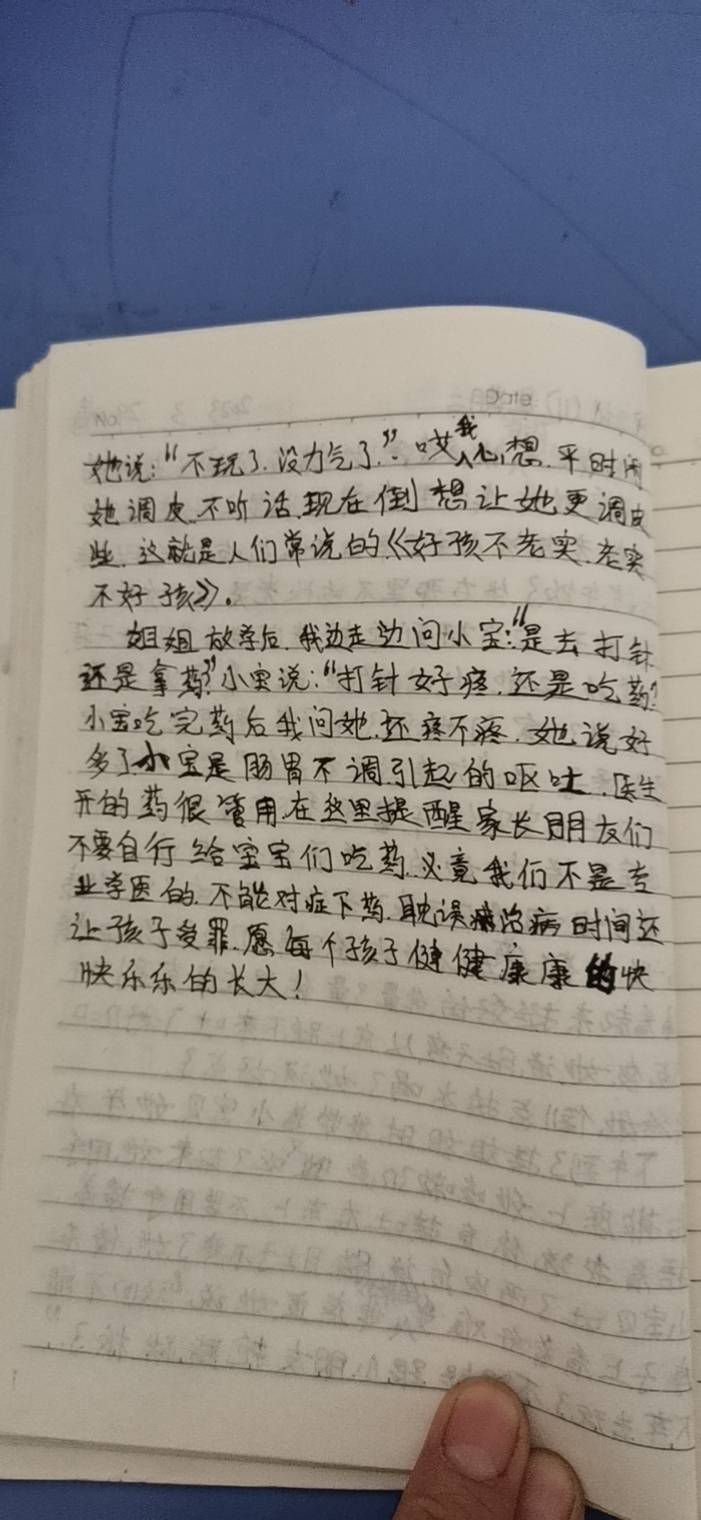 Date
她说:“不玩了.没力气了.”.哎我心想.平时闲
她调皮.不听话.现在倒想让她更调皮
些.这就是人们常说的《好孩不老实.老实
不好孩》。
姐姐放学后.我边走边问小宝:“是去打针
还是拿药?”小宝说:“打针好疼.还是吃药?
小宝吃完药后我问她.还疼不疼.她说好
多了小宝是肠胃不调引起的呕吐.医生
开的药很管用.在这里提醒家长朋友们
不要自行给宝宝们吃药.必竟我们不是专
业学医的.不能对症下药.耽误治病时间还
让孩子受罪.愿每个孩子健健康康的快
快乐乐的长大!